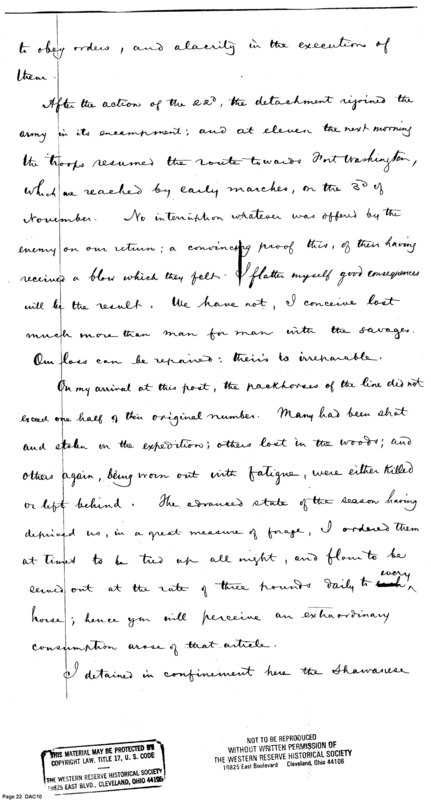 to obey orders, and alacrity in the execution of
them.
After the action of the 22d, the detachment rejoined the
army in its encampment; and at eleven the next morning
the troops resumed the route towards Fort Washington,
which we reached by early marches, on the 3d of
November. No interruption whatever was offered by the
enemy on our return; a convincing proof this, of their having
received a blow which they felt. I flatter myself good consequences
will be the result. We have not, I conceive lost
much more than man for man with the savages.
Our loss can be repaired: their's is irreparable.
On my arrival at this post, the packhorses of the line did not
exceed one half of their original number. Many had been shot
and stolen on the expedition; others lost in the woods; and
others again, being worn out with fatigue, were either killed
or left behind. The advanced state of the season having
deprived us, in a great measure of forage, I ordered them
at times to be tied up all night, and flour to be
served out at the rate of three pounds daily to every
horse; hence you will perceive an extraordinary
consumption arose of that article.
I detained in confinement here the Shawanese
THIS MATERIAL MAY BE PROTECTED BY
COPYRIGHT LAW, TITLE 17, U. S. CODE
THE WESTERN RESERVE HISTORICAL SOCIETY
10825 EAST BLVD., CLEVELAND, OHIO 44106
NOT TO BE REPRODUCED
WITHOUT WRITTEN PERMISSION OF
THE WESTERN RESERVE HISTORICAL SOCIETY
10825 East Boulevard Cleveland, Ohio 44106
Page 22 DAC10